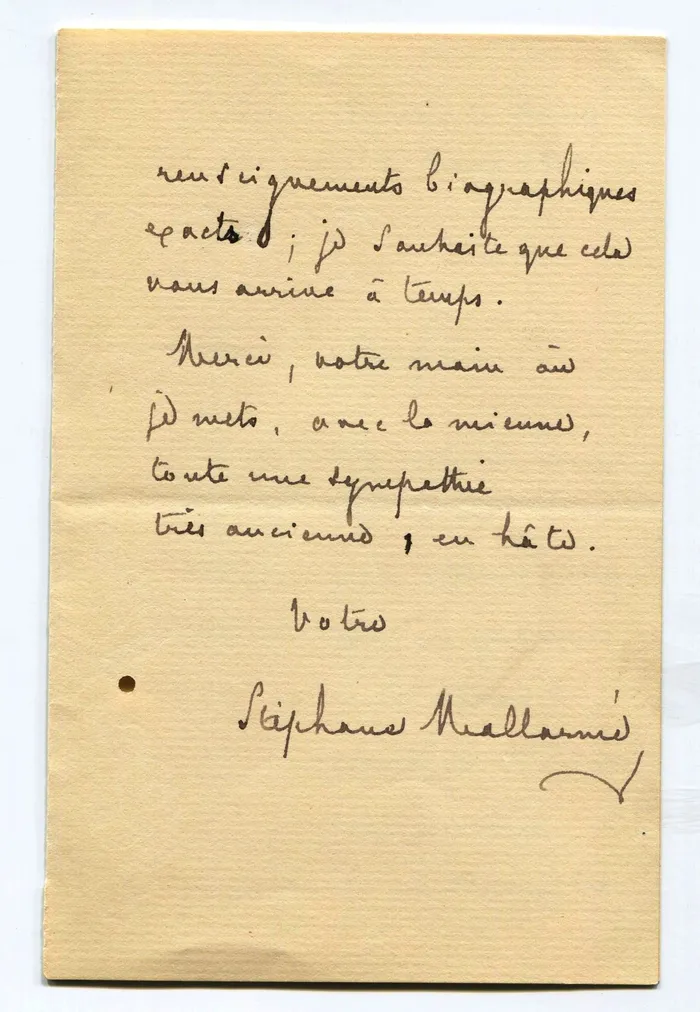 renseignements biographiques
exacts ; je souhaite que cela
vous arrive à temps.
Merci, votre main où
je mets, avec la mienne,
toute une sympathie
très ancienne, en hâte.
Votre
Stéphane Mallarmé